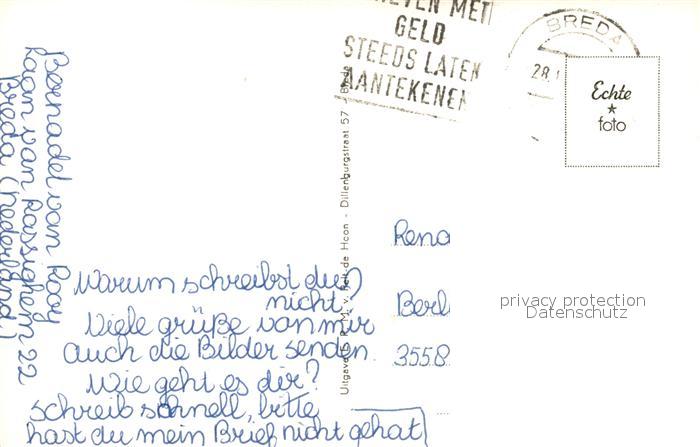 GELD
STEEDS LATEN
AANTEKENEN
BREDA
28.
Echte
foto
Bernadet van Rooy
Laan van Rassighem 22
Breda (Nederland.)
Uitgave
Dillenburgstraat 57 - Breda
Warum schreibst du
nicht?
Viele grüße van mir
auch die Bilder senden.
Wie geht es dir?
schreib schnell, bitte
hast du mein Brief nicht gehat
Rena
Berl
3558
privacy protection
Datenschutz